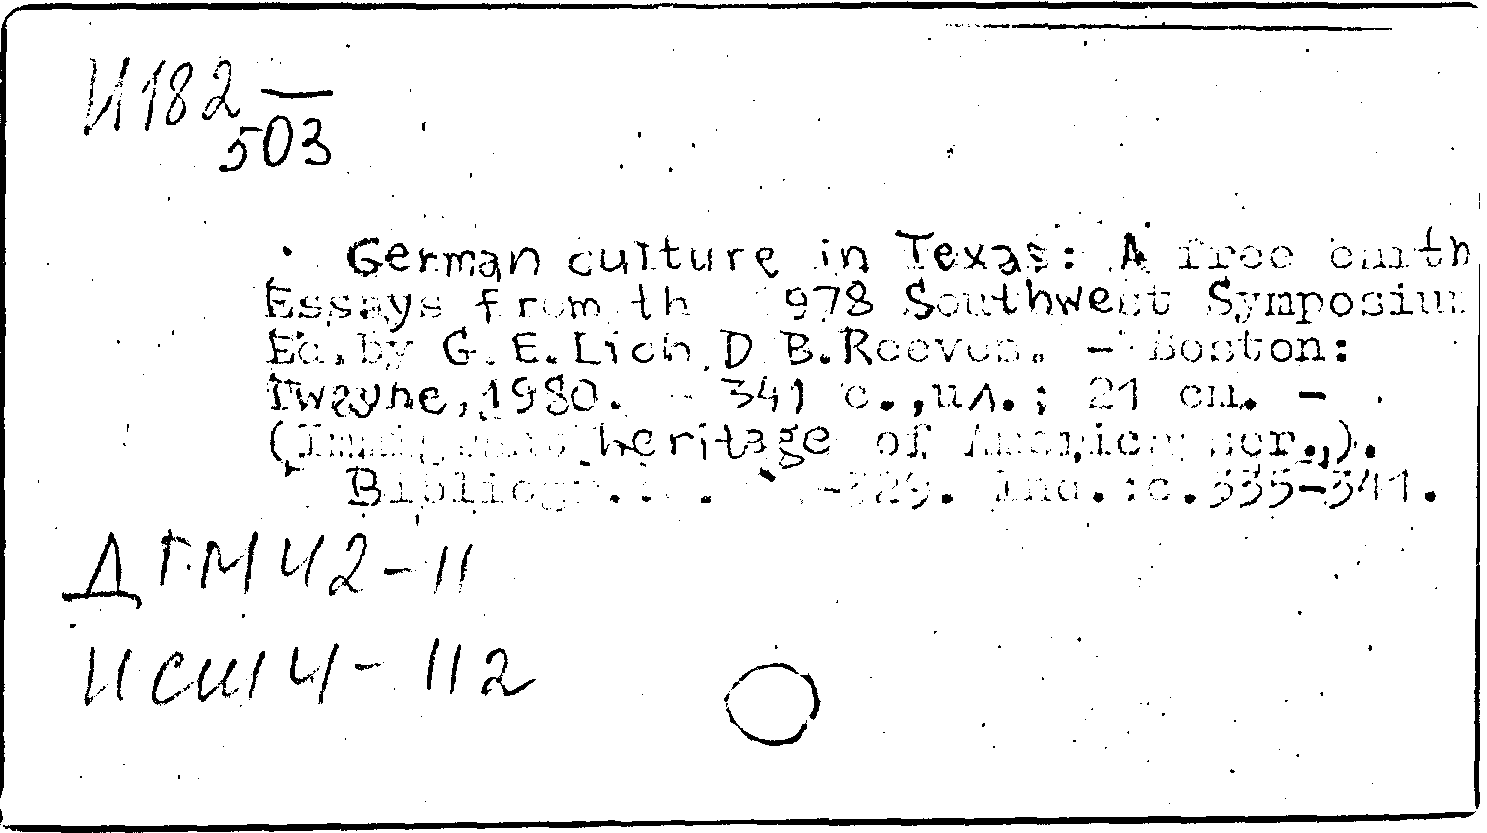 И182
503
German culture in Texas: A free earth
Essays from th 978 Southwest Symposiu
Ed. by G.E.Lich, D B.Reeves. - Boston:
Twayne,1980. - 341 с.,ил.; 21 см. -
( heritage of America ser.,).
Bibliogr. -329. Ind.:c.335-341.
ДГМ 42-11
ИСШ 14-112